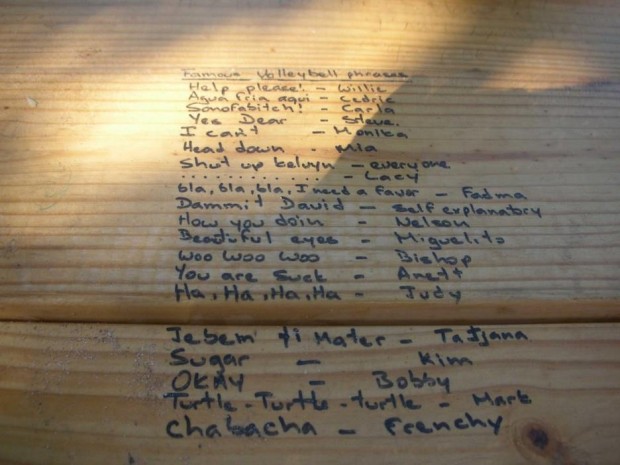 Famous Volleyball phrases
Help please! - Willie
Agua fria aqui - Cedric
Sonofabitch! - Carla
Yes Dear - Steve.
I can't - Monika
Head down - Mia
Shut up kelvyn - everyone
.............. - Lacy
bla, bla, bla, I need a favor - Fadma
Dammit David - self explanatory
How you doin - Nelson
Beautiful eyes - Miguelito
Woo Woo Woo - Bishop
You are suck -
Ha, Ha, Ha, Ha - Judy
Jebem ti Mater - Tatjana
Sugar - Kim
OKAY - Bobby
Turtle-Turtle-turtle - Mark
Chabacha - Frenchy